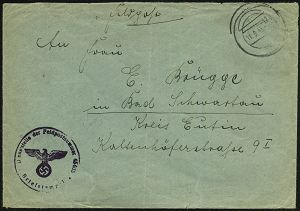 Feldpost
An
Frau
E. Brügge
in Bad Schwartau
Kreis Eutin
Kaltenhöferstraße 9I
Dienststelle der Feldpostnummer
Briefstempel